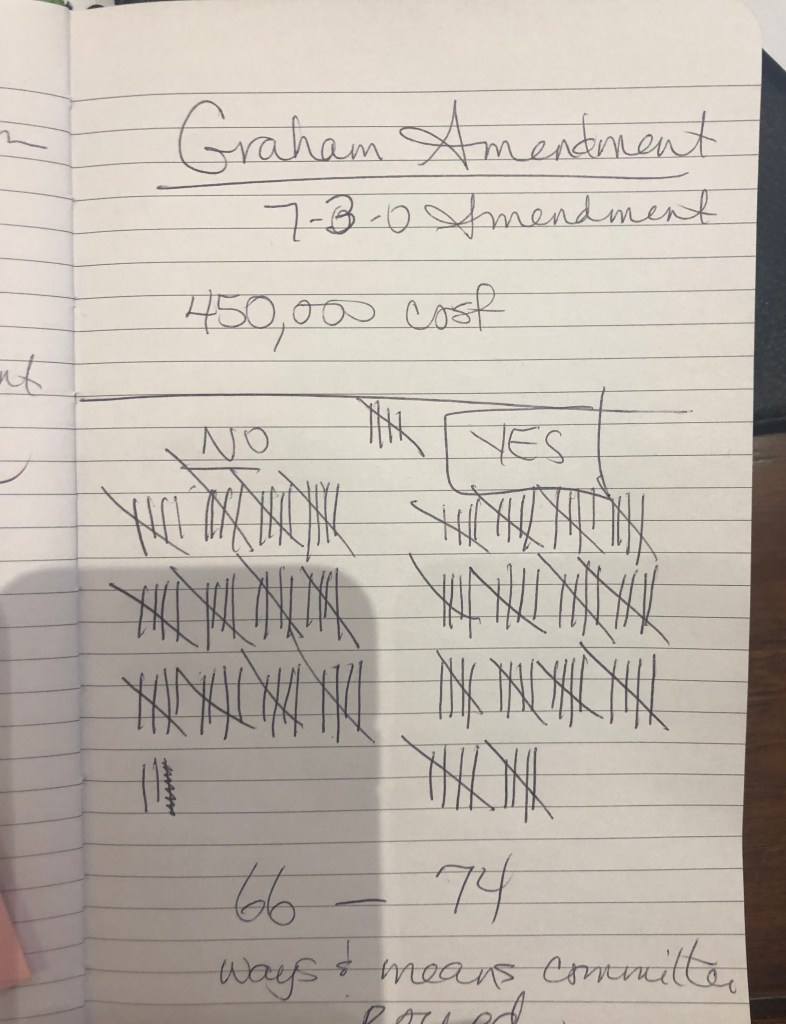 Graham Amendment
7-3-0 Amendment
450,000 cost
NO YES
66 — 74
ways & means committee
nt